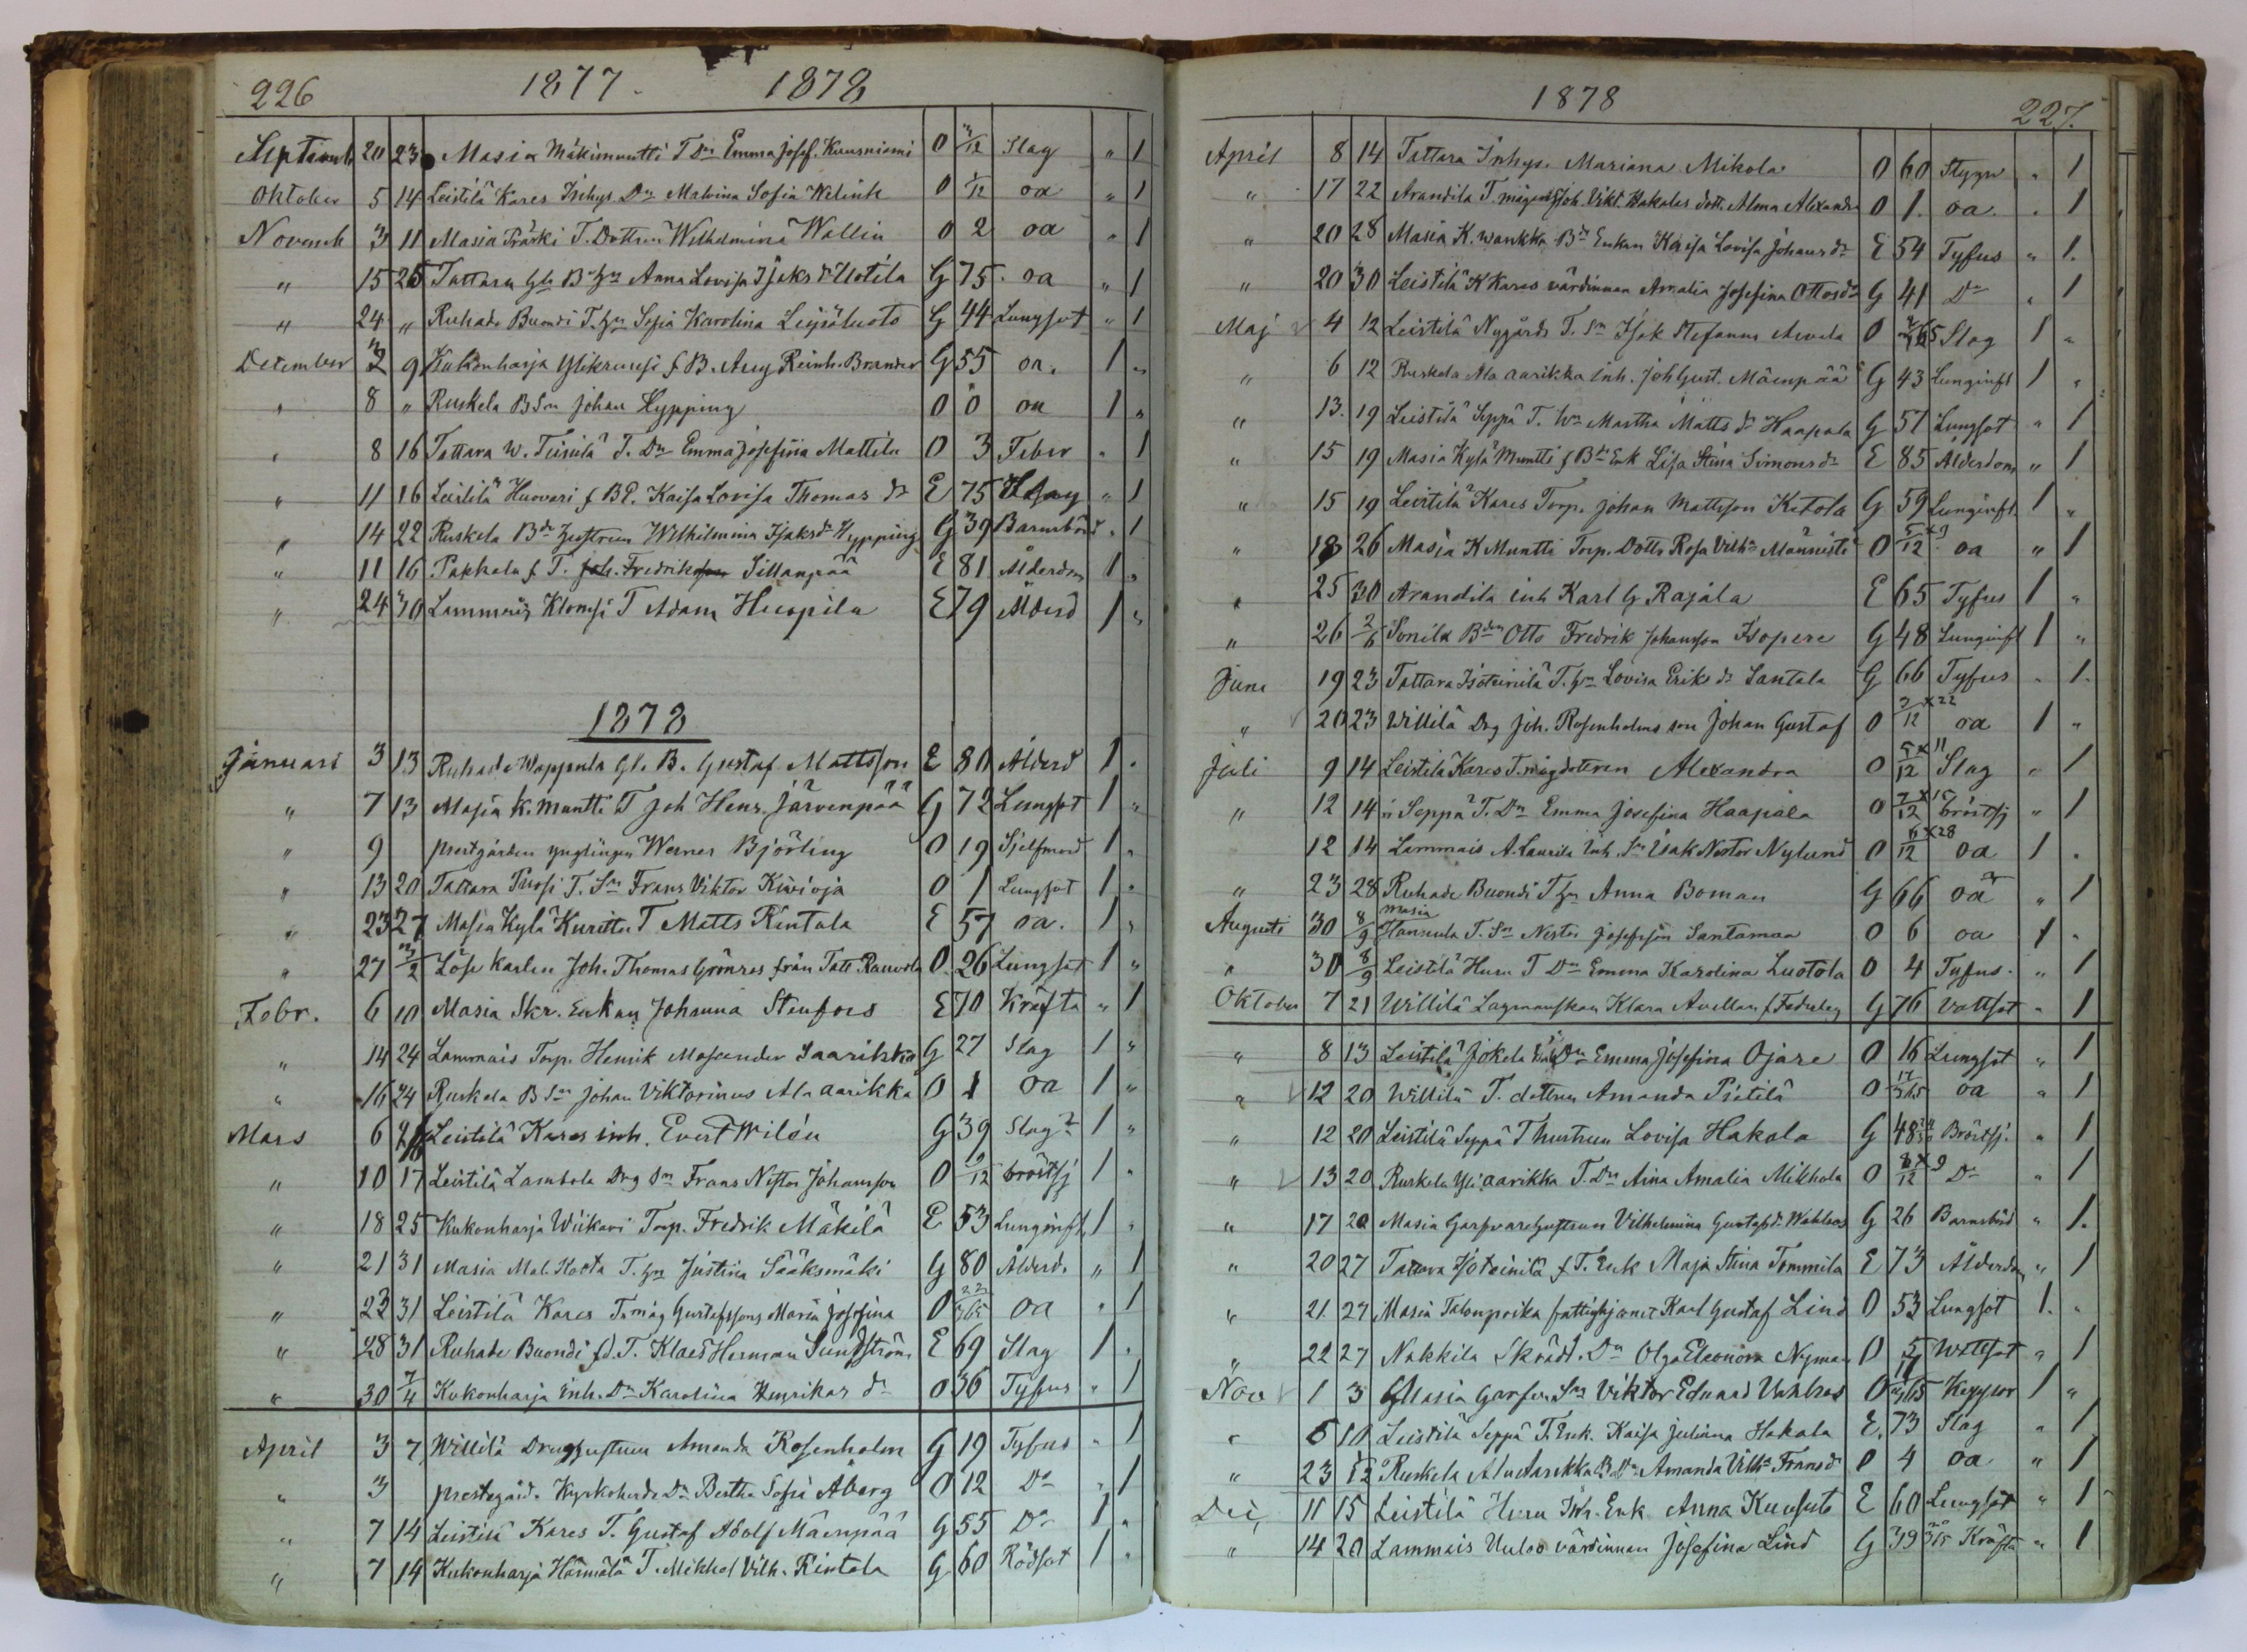 226
1877. 1878
Septemb. 20 23 Masia Mäkimuntti T Dr Emma Josef. Kuusniemi O /12 Slag " 1
Oktober 5 14 Leistilä Kares Inhys Dr Malvina Sofia Welink O 1/12 oa " 1
Novemb 3 11 Masia Prärki T. Dottren Wilhelmina Wallin O 2 oa " 1
" 15 25 Tattara Gla B Hn Anna Lovisa Isaks dr Uotila G 75 oa " 1
" 24 " Ruhade Buondi T. Hn Sofia Karolina Leijäluoto G 44 Lungsot " 1
December 2 9 Kukonharja Ylikraussi f B. Aug Reinh. Brander G 55 oa. 1 "
" 8 " Ruskela B Sn Johan Hypping O 0 oa 1 "
" 8 16 Tattara W. Teinilä T. Dr Emma Josefina Mattila O 3 Feber " 1
" 11 16 Leistilä Huovari f BE. Kaisa Lovisa Thomas dr E 75 Slag " 1
" 14 22 Ruskela Bde hustrun Wilhelmina Isaksdr Hypping G 39 Barnsbörd " 1
" 11 16 Pakkala f T. Joh. Fredrikson Sillanpää E 81 Ålderdom 1 "
" 24 30 Lammais Klomsi T Adam Heopila E 79 Ålderd 1 "
1878
Januari 3 13 Ruhade Wappula Gl. B. Gustaf Mattsson E 80 Ålderd 1 "
" 7 13 Masia K. Muntti T Joh Henr. Järvenpää G 72 Lungsot 1 "
" 9 Prestgården ynglingen Werner Björling O 19 Sjelfmord 1 "
" 13 20 Tattara Pursi T. Sn Frans Viktor Kivioja O 1 Lungsot 1 "
" 23 27 Masia Kylä Kuritto T Matts Rintala E 57 oa. 1 "
" 27 3/2 Löse karlen Joh. Thomas Grönros från Tatt. Rauvola O 26 Lungsot 1 "
Febr. 6 10 Masia Skr. Enkan Johanna Stenfors E 70 Kräfta " 1
" 14 24 Lammais Torp. Henrik Mascander Saarikko G 27 Slag 1 "
" 16 24 Ruskela B Sn Johan Viktorinus Ala aarikka O 1 oa 1 "
Mars 6 Leistilä Kares inh. Evert Wilén G 39 Slag 1 "
" 10 17 Leistilä Lambola Drg Sn Frans Nestor Johansson O 9/12 bröstsj 1 "
" 18 25 Kukonharja Wiikari Torp. Fredrik Mäkilä E 53 Lunginfl. 1 "
" 21 31 Masia Mal. Kosta T. Hn Justina Sääksmäki G 80 Ålderd. " 1
" 23 31 Leistilä Kares T. måg Gustafssons Maria Josefina O 22/365 oa " 1
" 28 31 Ruhade Buondi fd. T. Klaes Herman Sundström E 69 Slag 1 "
" 30 7/4 Kukonharja Inh. Dr Karolina Henrikas dr O 36 Tyfus " 1
April 3 7 Willilä Drug hustrun Amanda Rosenholm G 19 Tyfus " 1
" 3 prestegård. Kyrkoherde Dr Bertha Sofia Åberg O 12 Do " 1
" 7 14 Leistilä Kares T. Gustaf Adolf Mäenpää G 55 Do 1 "
" 7 14 Kukonharja Härmälä T. Mikkel Vilh. Rintala G. 60 Rödsot 1 "
1878
227.
April 8 14 Tattara Inhys. Mariana Mikola O 60 Styng " 1
" 17 22 Arandila T. mågens Joh. Vikt. Hakalas dott. Alma Alexandra O 1. oa. " 1
" 20 28 Masia K. wankka Bde Enkan Kajsa Lovisa Johansdr E 54 Tyfus " 1.
" 20 30 Leistilä K Kares värdinnan Amalia Josefina Ottosdr G 41 Do " 1
Maj 4 12 Leistilä Nygårds T. Sn Isak Stefanus Arvela O 2/365 Slag 1 "
" 6 12 Ruskela Ala aarikka inh. Joh Gust. Mäenpää G 43 Lunginfl 1 "
" 13. 19 Leistilä Seppä T. Hn Martha Matts dr Haapala G 57 Lungsot " 1
" 15 19 Masia Kylä Muntti f Bde Enk Lisa Stina Simonsdr E 85 Ålderdom " 1
" 15 19 Leistilä Kares Torp. Johan Mattsson Ketola G 59 Lunginfl. 1 "
" 18 26 Masia K Muntti Torp. Dottr Rosa Vilha Männistö O 5/12 x 9 oa " 1
" 25 30 Arandila inh Karl G Rajala E 65 Tyfus 1 "
" 26 2/6 Sonila Bdn Otto Fredrik Johansson Isopere G 48 Lunginfl 1 "
Juni 19 23 Tattara Isoteinilä T. Hn Lovisa Eriks dr Santala G 66 Tyfus " 1.
" 20 23 Willilä Drg Joh. Rosenholms son Johan Gustaf O 2/12 x 22 oa 1 "
Juli 9 14 Leistilä Kares T. måg dottren Alexandra O 5/12 x 11 Slag " 1
" 12 14 " Seppä T. Dr Emma Josefina Haapala O 7/12 x 15 bröstsj " 1
12 14 Lammais A. Laurila Inh. Sn Isak Nestor Nylund O 6/12 x 28 oa 1 "
" 23 28 Ruhade Buondi T Hn Anna Boman G 66 oa " 1
Augusti 30 8/9 Masia Hannula T. Sn Nestor Josefsson Santamaa O 6 oa 1 "
" 30 8/9 Leistilä Huru T Dr Emma Karolina Luotola O 4 Tyfus. " 1
Oktober 7 21 Willilä Lagmanskan Klara Avellan G 76 Vattsot " 1
" 8 13 Leistilä Jokela Dr Emma Josefina Ojare O 16 Lungsot " 1
" 12 20 Willilä T. dottren Amanda Pietilä O 17/365 oa " 1
" 12 20 Leistilä Seppä T hustrun Lovisa Hakala G 48 Bröstsj. " 1
" 13 20 Ruskela Yli aarikka T. Dr Aina Amalia Mikkola O 8/12 x 9 Do " 1
" 17 20 Masia Garfvare hustrun Vilhelmina Gustafsdr Wahlroos G 26 Barnsbörd " 1.
" 20 27 Tattara Isoteinilä f T. Enk Maja Stina Tommila E 73 Ålderdom " 1
" 21. 27 Masia Talonpoika fattighjonet Karl Gustaf Lind O 53 Lungsot 1. "
" 22 27 Nakkila Skrädd. Dr Olga Eleonora Nyman O 5 Wattsot " 1
Nov 1 3 Masia Garfvar Sn Viktor Edvard Wahlroos O 17/365 Keppsor 1 "
" 5 10 Leistilä Seppä T. Enk. Kaisa Juliana Hakala E. 73 Slag " 1
" 23 Ruskela Ala Aarikka B Dr Amanda Vilha Fransdr O 4 oa " 1
Dec, 11 15 Leistilä Huru Skr. Enk Anna Kuusisto E 60 Lungsot " 1
" 14 20 Lammais Uuloo värdinnan Josefina Lind G 39 Kräfta " 1